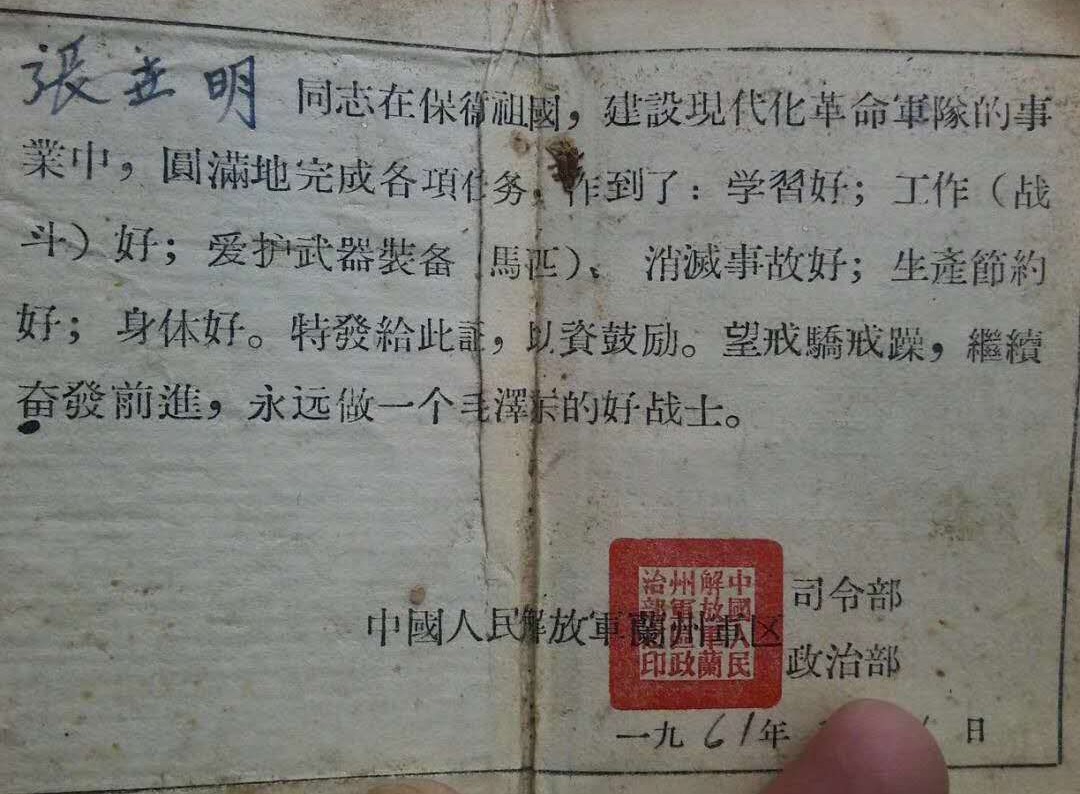 張並明 同志在保衛祖國，建設現代化革命軍隊的事
業中，圓滿地完成各項任务，作到了：学習好；工作（战
斗）好；爱护武器裝备（馬匹）、消滅事故好；生產節約
好；身体好。特發給此証，以資鼓励。望戒驕戒躁，繼續
奋發前進，永远做一个毛澤东的好战士。
中國人民解放軍蘭州軍区
司令部
政治部
中國人民
解放軍蘭
州軍區政
治部印
一九61年 日